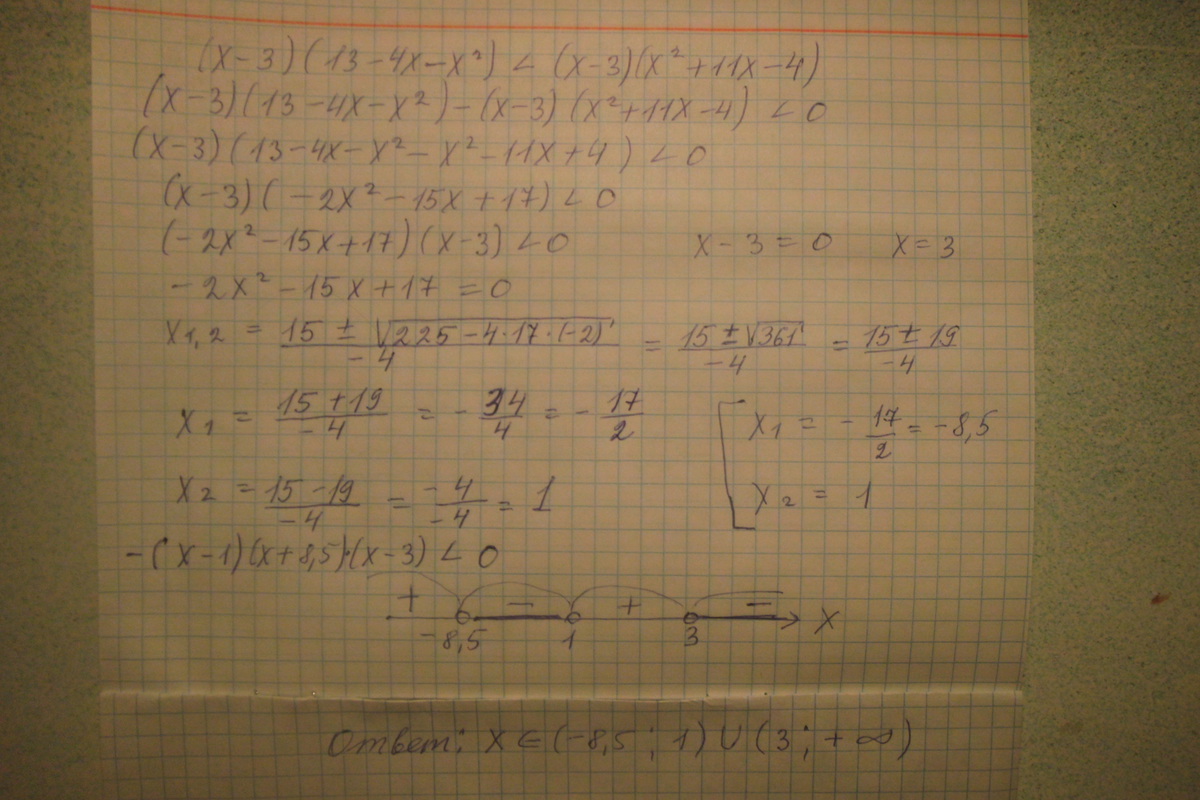 (x-3)(13-4x-x²) < (x-3)(x²+11x-4)
(x-3)(13-4x-x²)-(x-3)(x²+11x-4) <0
(x-3)(13-4x-x²-x²-11x+4) <0
(x-3)(-2x²-15x+17) <0
(-2x²-15x+17)(x-3) <0 x-3=0 x=3
-2x²-15x+17 =0
x1,2 = (15 ± √(225-4·17·(-2)))/(-4) = (15±√361)/(-4) = (15±19)/(-4)
x1 = (15+19)/(-4) = -34/4 = -17/2 [ x1 = -17/2 = -8,5
x2 = (15-19)/(-4) = (-4)/(-4) = 1 x2 = 1
-(x-1)(x+8,5)·(x-3) < 0
+ - + -
-8,5 1 3 x
Ответ: x∈(-8,5; 1)∪(3; +∞)